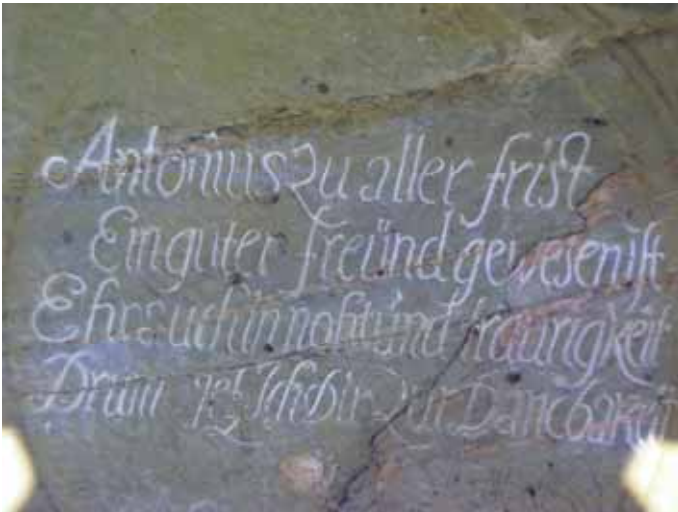 Antonius Zu aller frist
Ein guter freünd gewesen ist
in noht ünd traurigkeit
Drum Ich Dir Zur Dancbarkeit